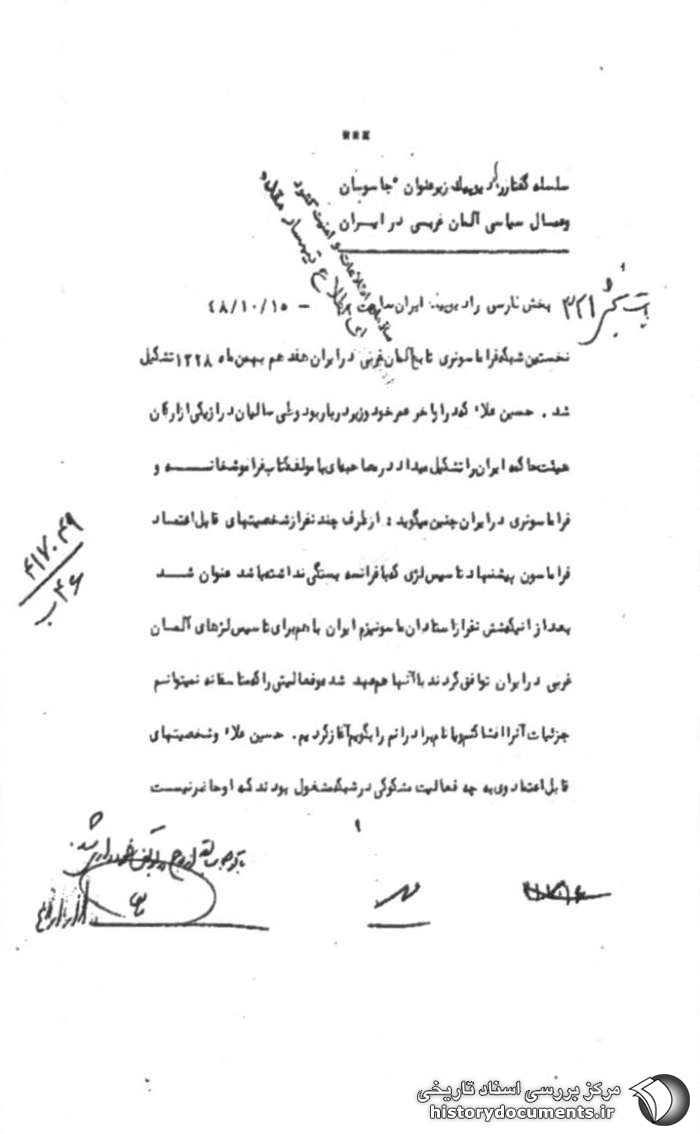 ***
سلسله گفتار رادیو پیک زیر عنوان "جاسوسان
وعمال سیاسی آلمان غربی در ایران
سازمان اطلاعات و امنیت کشور
اطلاع تیمسار
۳۲۱
پخش فارس رادیو پیک ایران ساعت – ۴۸/۱۰/۱۵
نخستین شبکه فراماسونری تابع آلمان غربی در ایران هفدهم بهمن ماه ۱۳۲۸ تشکیل
شد . حسین علاء که در اواخر عمر خود وزیر دربار بود وطی سالیان دراز یکی از ارکان
هیئت حاکمه ایران را تشکیل میداد در مصاحبه ای با مولف کتاب فراموشخانه و
فراماسونری در ایران چنین میگوید : از طرف چند نفر از شخصیتهای قابل اعتماد
فراماسون پیشنهاد تاسیس لژی که با فرانسه بستگی نداشته باشد عنوان شد
بعد از انیکه شش نفر از استادان ماسونیزم ایران با هم برای تاسیس لژهای آلمان
غربی در ایران توافق کردند با آنها هم عهد شدم و فعالیتی را که متاسفانه نمیتوانم
جزئیات آنرا افشا کنم و یا نام برادرانم را بگویم آغاز کردیم . حسین علاء وشخصیتهای
قابل اعتماد وی به چه فعالیت مشکوکی در شبکه مشغول بودند که او حاضر نیست
۴۱۷۰۴۹
۴۶ ب
۱
مرکز بررسی اسناد تاریخی
historydocuments.ir